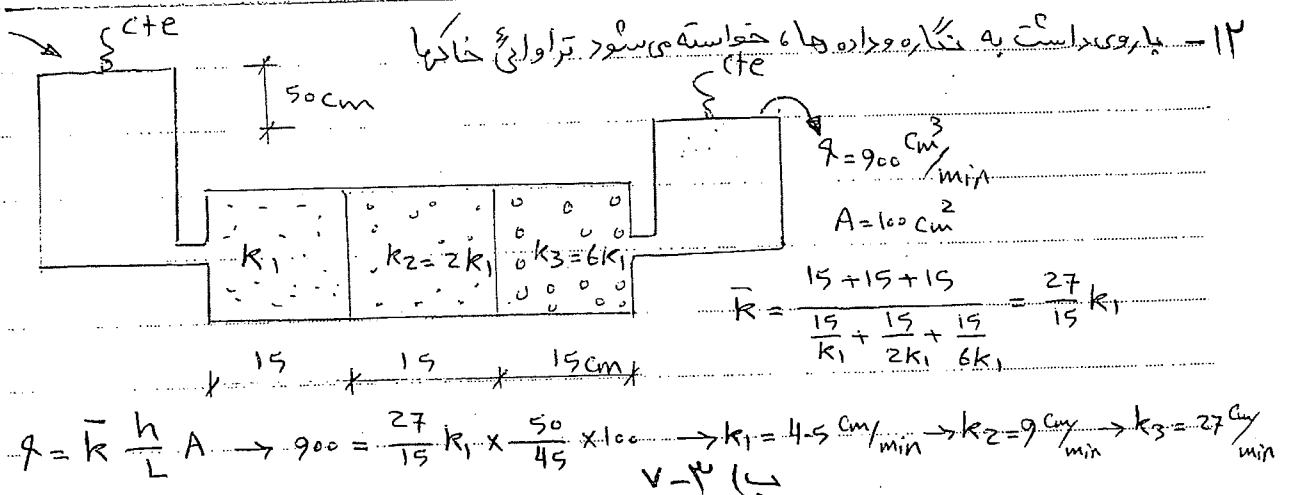 cte
۱۲- با روی داشت به نگاره و داده ها، خواسته می شود تراوائی خاکها
50 cm
cte
q = 900 cm³/min
A = 100 cm²
K₁ k₂ = 2k₁ k₃ = 6k₁
k̄ = (15 + 15 + 15) / (15/k₁ + 15/2k₁ + 15/6k₁) = 27/15 k₁
15 15 15 cm
q = k̄ h/L A → 900 = 27/15 k₁ × 50/45 × 100 → k₁ = 4.5 cm/min → k₂ = 9 cm/min → k₃ = 27 cm/min
ب) ۳-۷